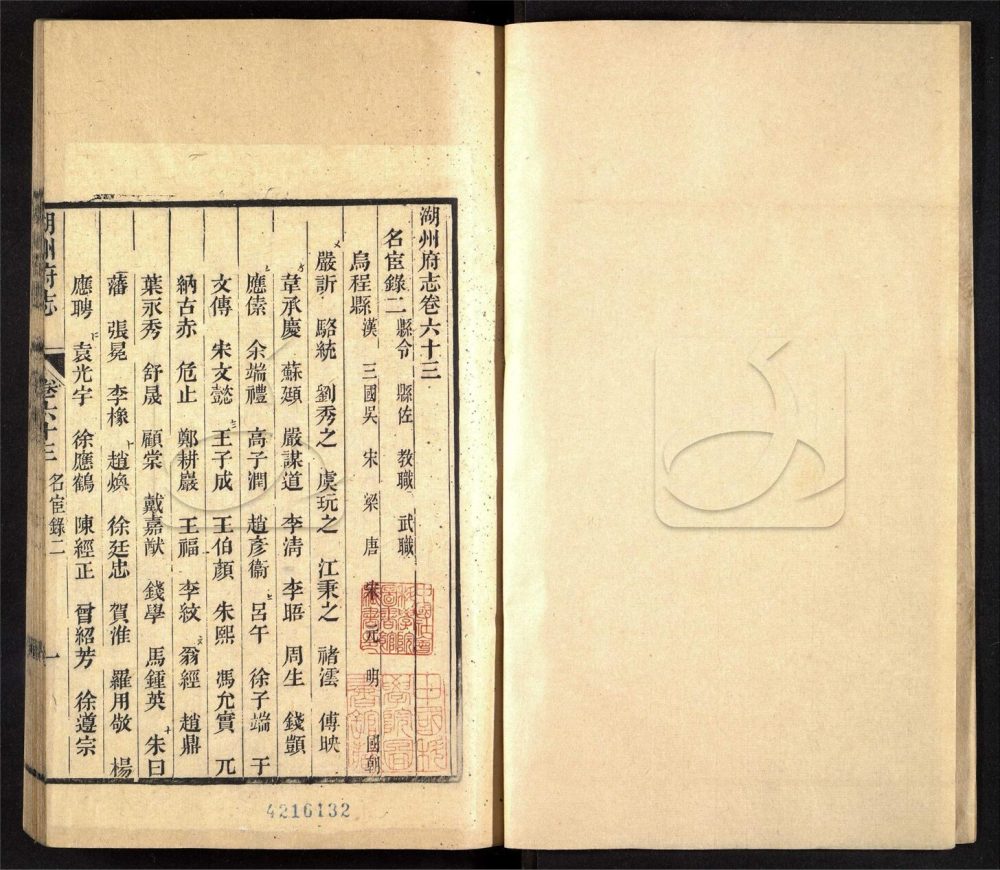 湖州府志卷六十三
名宦錄二 縣令 縣佐 教職 武職
烏程縣 漢 三國吳 宋 梁 唐 宋 元 明 國朝
嚴訢 駱統 劉秀之 虞玩之 江秉之 褚澐 傅映
韋承慶 蘇頲 嚴謀道 李清 李晤 周生 錢顗
應傃 余端禮 高子潤 趙彥衞 呂午 徐子端 于
文傳 宋文懿 王子成 王伯顏 朱熙 馮允實 兀
納古赤 危止 鄭耕巖 王福 李紋 翁經 趙鼎
葉永秀 舒晟 顧棠 戴嘉猷 錢學 馬鍾英 朱曰
藩 張冕 李橡 趙煥 徐廷忠 賀淮 羅用敬 楊
應聘 袁光宇 徐應鶴 陳經正 曾紹芳 徐遵宗
湖州府志 卷六十三 名宦錄二 一
4216132